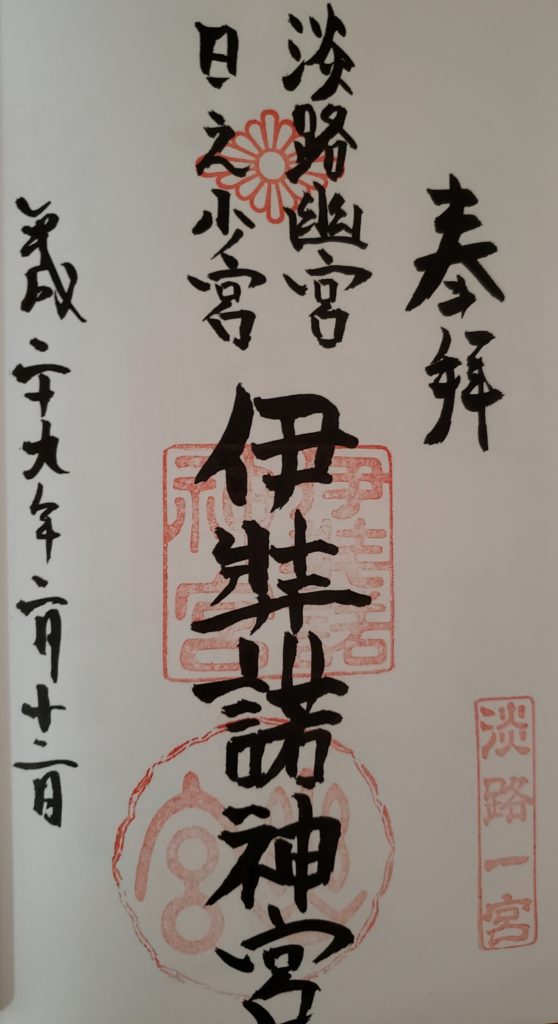 奉拝
淡路一宮
淡路幽宮
日之少宮
伊弉諾神宮
伊弉諾神宮
幽宮
平成二十九年二月十二日